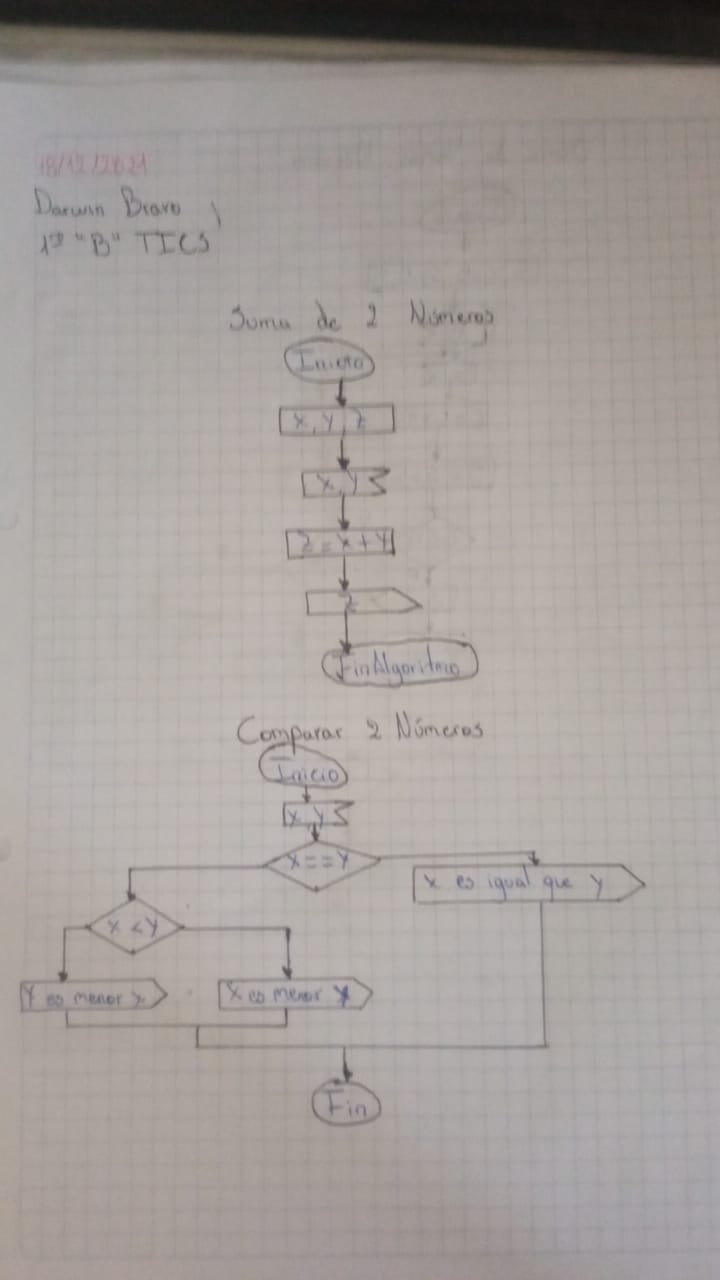 18/12/2021
Darwin Bravo
1º "B" TICS
Suma de 2 Números
Inicio
X, Y, Z
X, Y
Z = X + Y
Z
FinAlgoritmo
Comparar 2 Números
Inicio
X, Y
X == Y
X es igual que Y
X < Y
Y es menor X
X es menor Y
Fin